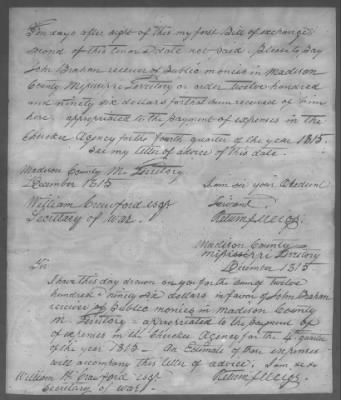 Ten days after sight of this my first Bill of exchange
second of this tenor & date not paid Please to pay
John Brahan receiver of Public monies in Madison
County Mississippi Territory or order twelve hundred
and ninety six dollars for that sum received of him
here, appropriated to the payment of expenses in the
Cherokee Agency for the fourth quarter of the year 1815.
See my letter of advice of this date.
Madison County M. Territory
December 1815 I am Sir your Obedient
William Crawford esqr Servant
Secretary of War. Return J. Meigs.
Madison County
Mississippi Territory
December 1815
Sir
I have this day drawn on you for the sum of twelve
hundred & ninety six dollars in favor of John Brahan
receiver of Public monies in Madison County
M. Territory - appropriated to the payment of
of expenses in the Cherokee Agency for the 4 quarter
of the year 1815 - An Estimate of those expenses
will accompany this letter of advice. I am
William H. Crawford esqr. Return J. Meigs
Secretary of war.